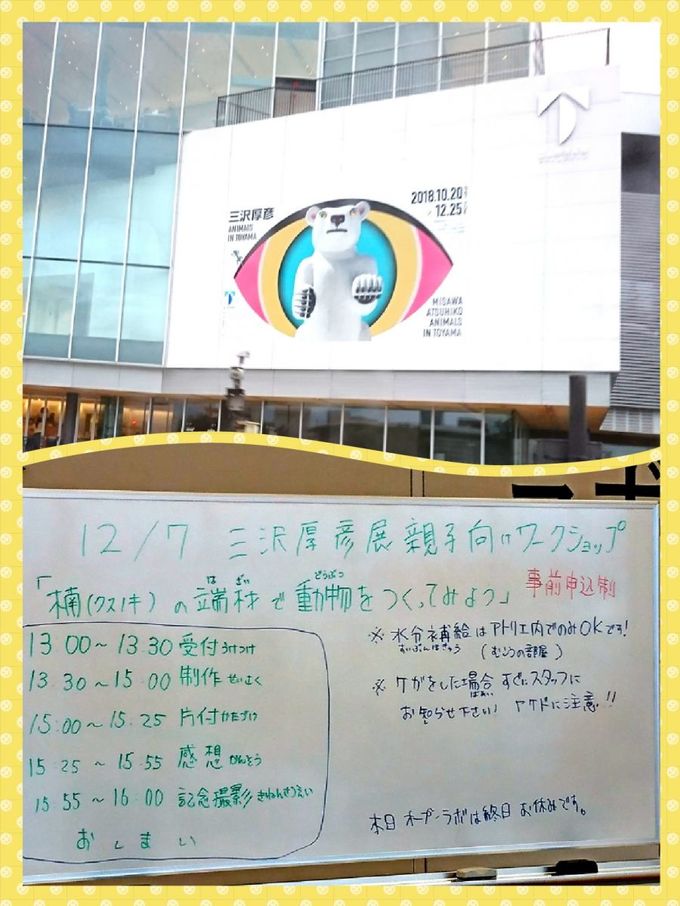 三沢厚彦
ANIMALS
IN TOYAMA
2018.10.20
12.25
MISAWA
ATSUHIKO
ANIMALS
IN TOYAMA
12/7 三沢厚彦展 親子向けワークショップ
「楠(クスノキ)の端材で動物をつくってみよう」
は ざい どうぶつ
事前申込制
13:00～13:30 受付 うけつけ
13:30～15:00 制作 せいさく
15:00～15:25 片付 かたづけ
15:25～15:55 感想 かんそう
15:55～16:00 記念撮影 きねんさつえい
おしまい
※ 水分補給はアトリエ内でのみOKです!
すいぶんほきゅう
※ ケガをした場合 すぐにスタッフに
ばあい
お知らせ下さい! ヤケドに注意!!
本日 オープンラボは終日 お休みです。